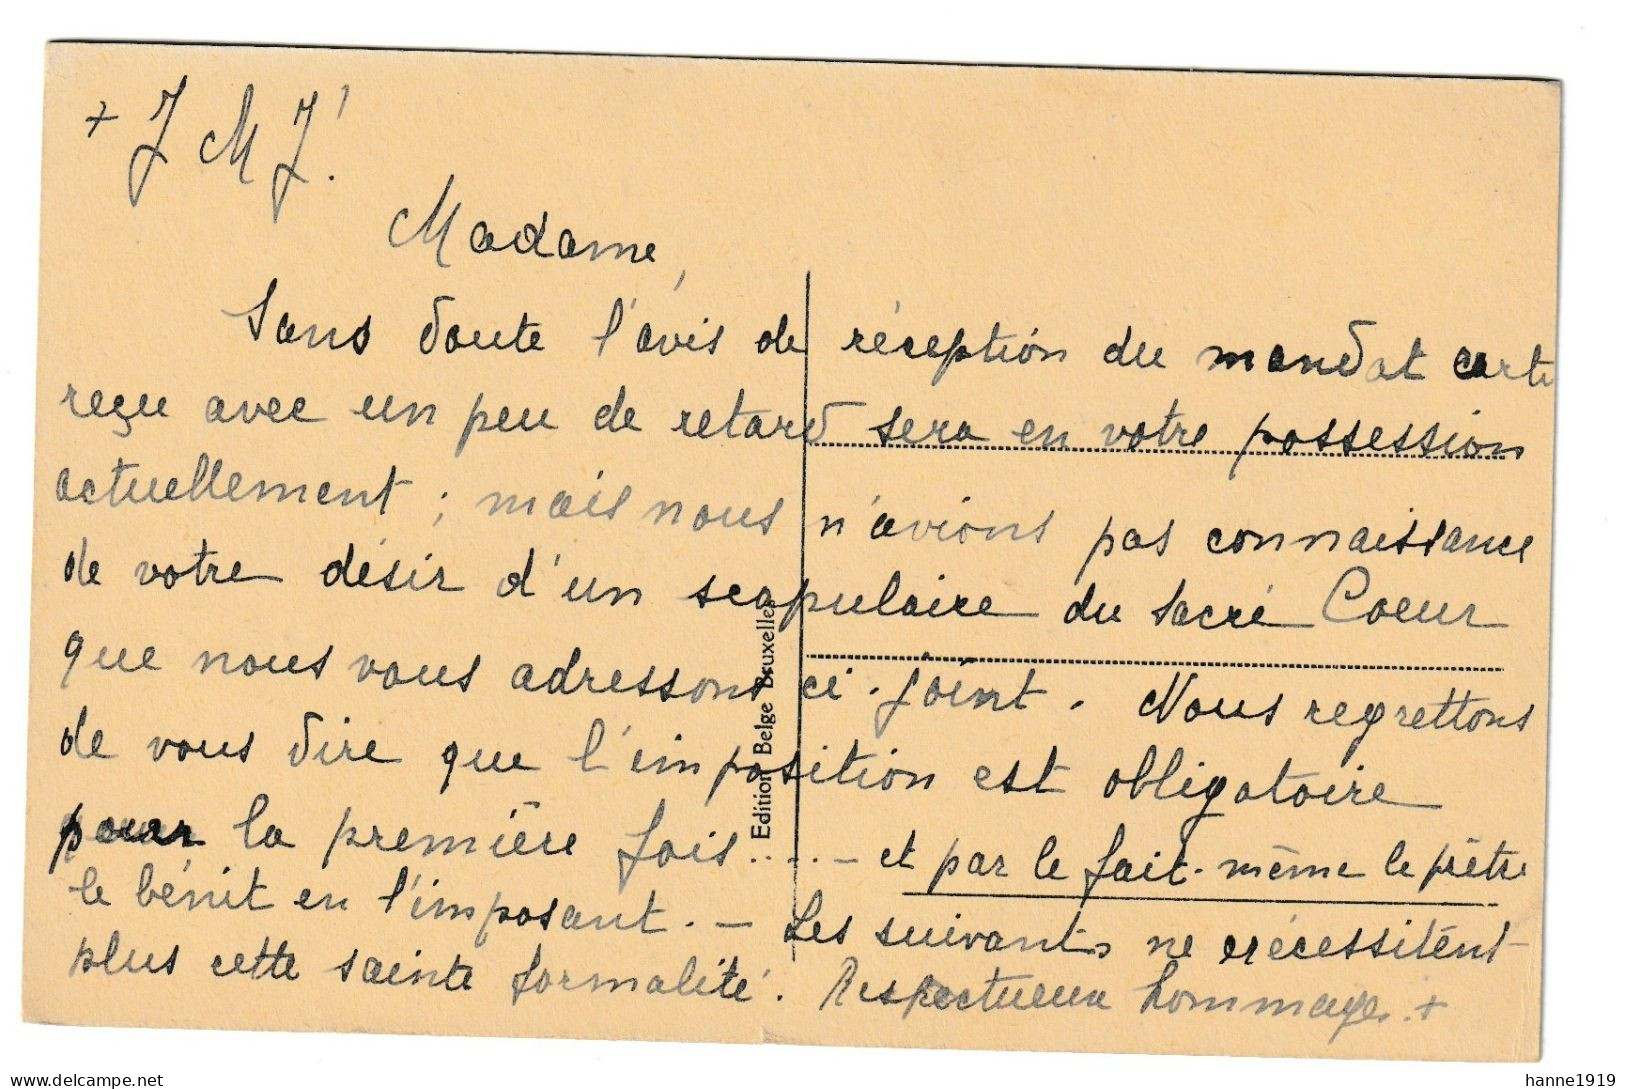 + J M J!
Madame,
Sans doute l'avis de réception du mandat carte
reçu avec un peu de retard sera en votre possession
actuellement ; mais nous n'avions pas connaissance
de votre désir d'un scapulaire du Sacré Coeur
que nous vous adressons ci-joint. Nous regrettons
de vous dire que l'imposition est obligatoire
pour la première fois..... - et par le fait-même le prêtre
le bénit en l'imposant. - Les suivants ne nécessitent
plus cette sainte formalité. Respectueux hommages. +
Edition Belge Bruxelles
delcampe.net
hanne1919